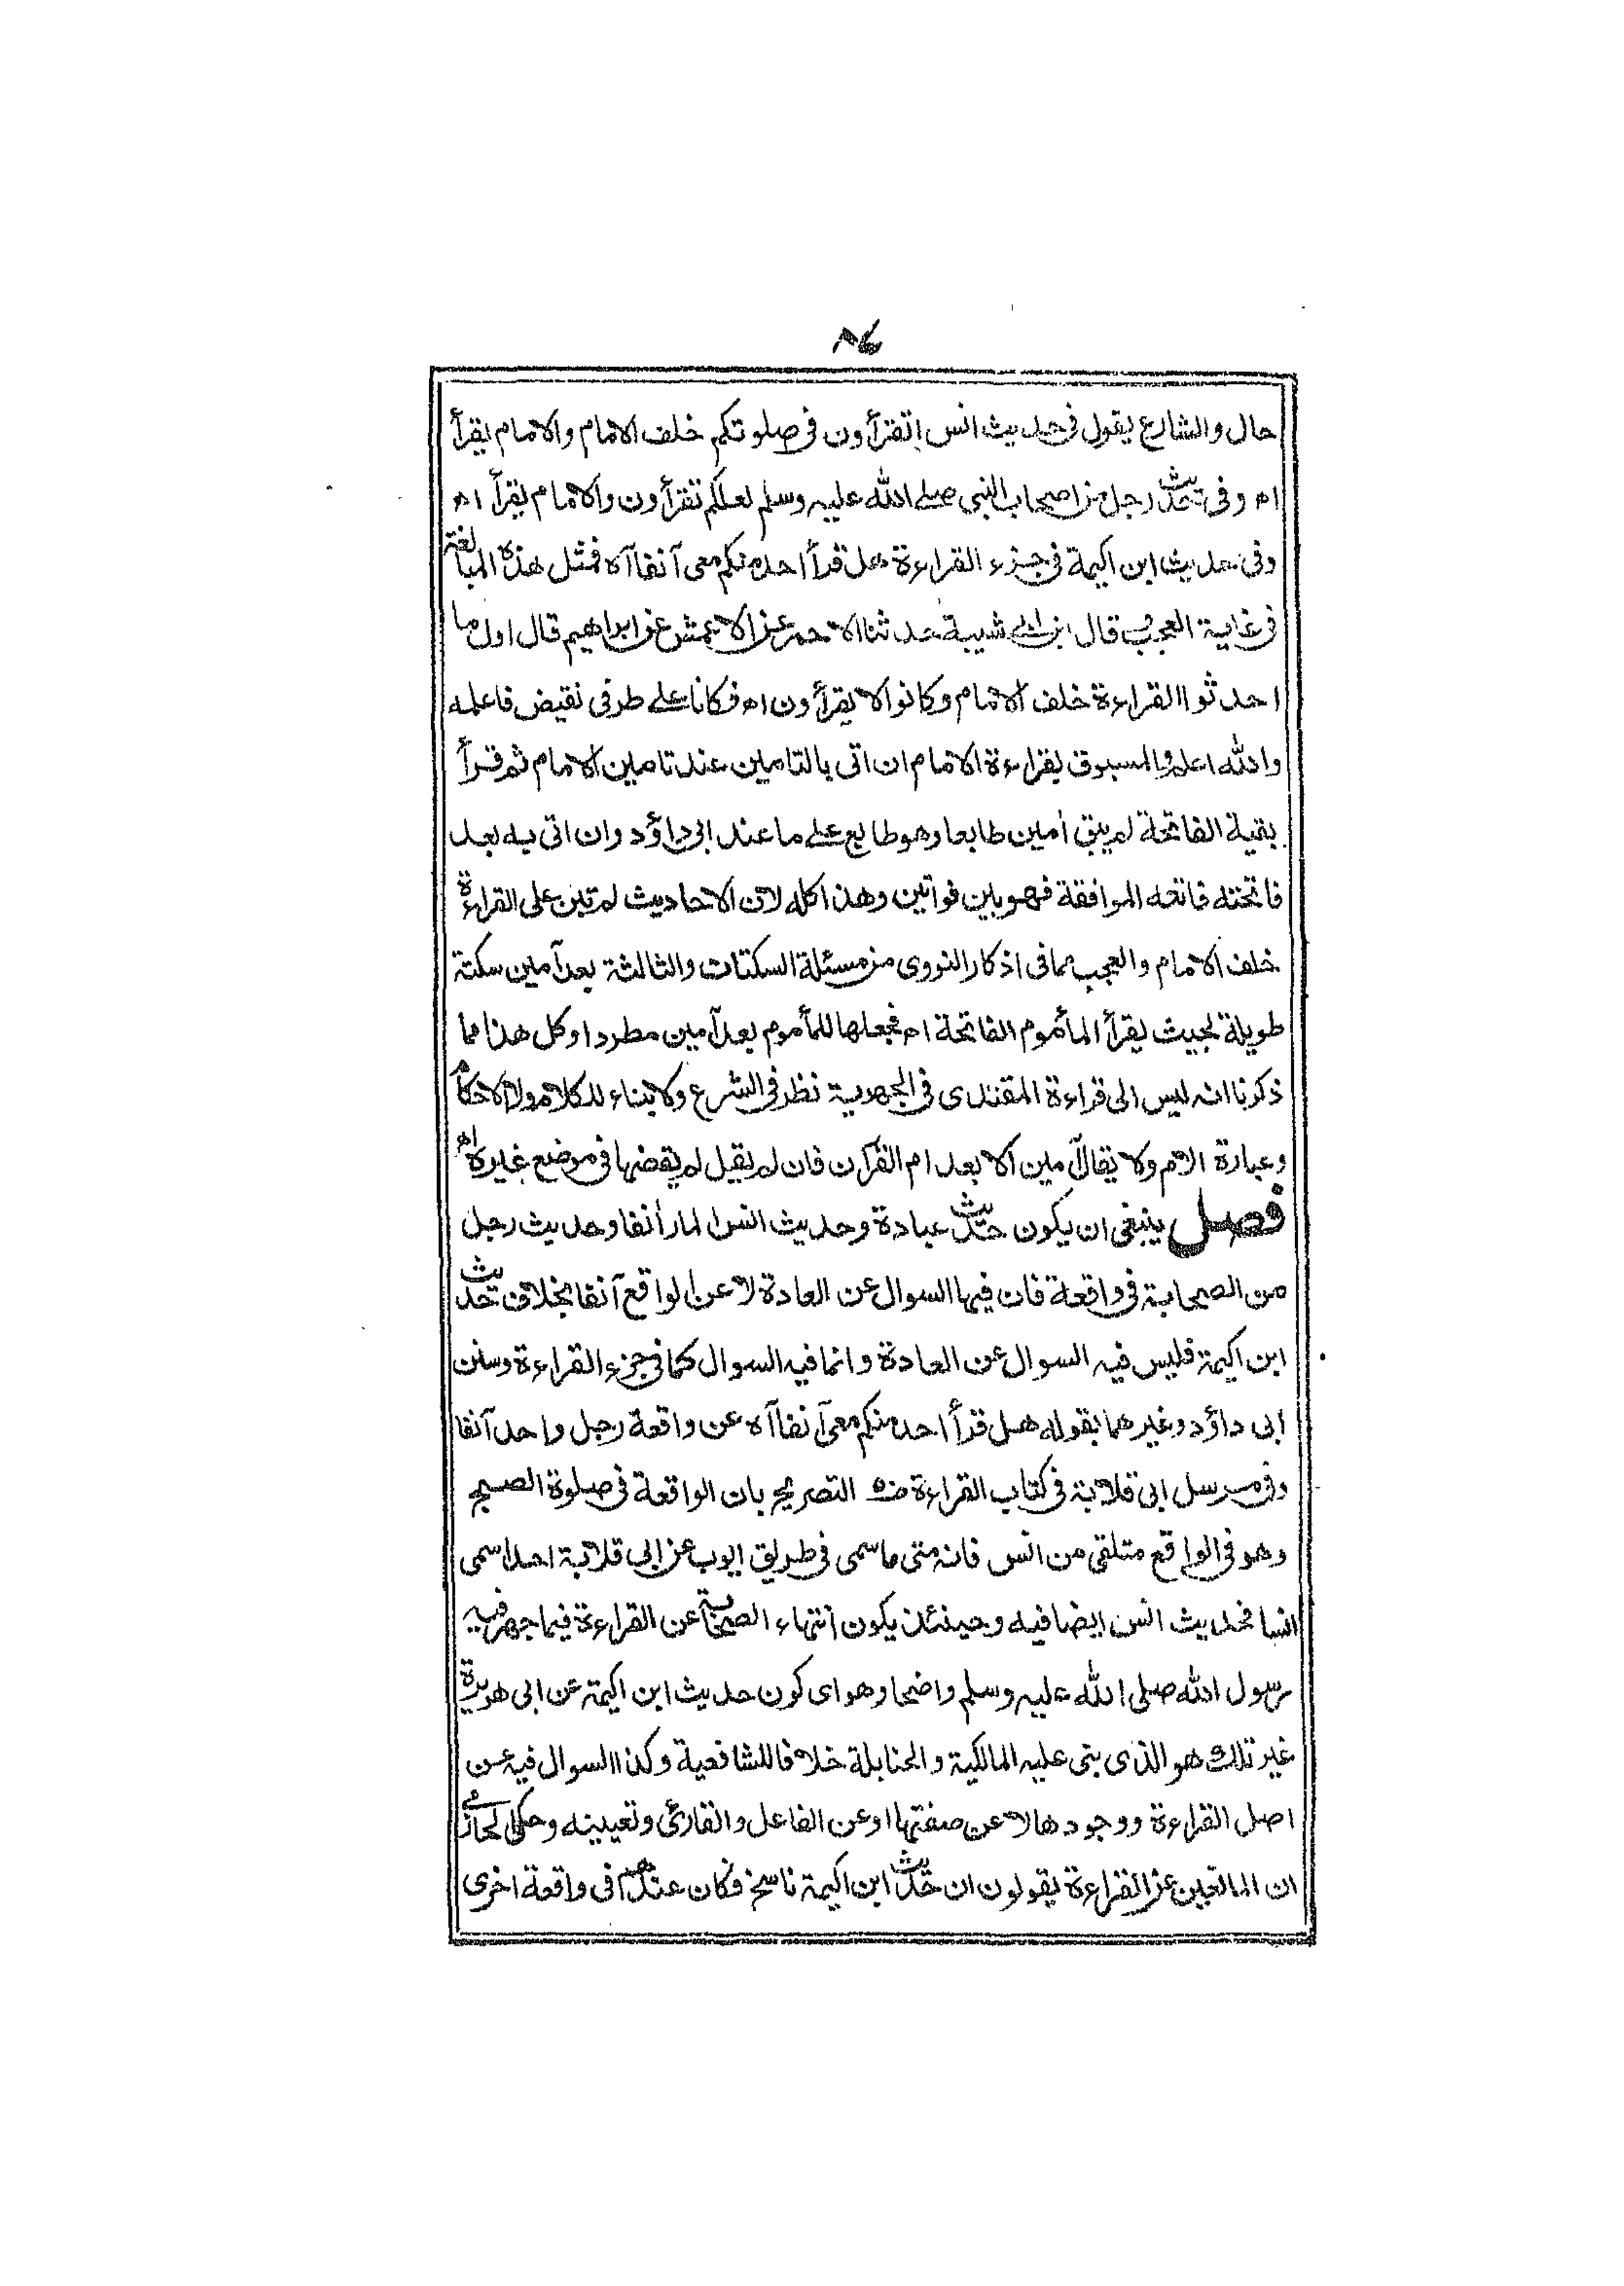 ٨٦
حال والشارع يقول فى حديث انس اتقرأون فى صلوتكم خلف الامام والامام يقرأ
اه وفى حديث رجل من اصحاب النبى صلے الله عليه وسلم لعلكم تقرأون والامام يقرأ اه
وفى حديث ابن اكيمة فى جزء القراءة هل قرأ احد منكم معى آنفا آه فمثل هذه المبالغة
فى غاية العجب قال ابن ابى شيبة حدثنا الاحمر عن الاعمش عن ابراهيم قال اول ما
احدثوا القراءة خلف الامام وكانوا لا يقرأون اه فكانا علے طرفى نقيض فاعلمه
والله اعلم والمسبوق بقراءة الامام ان اتى بالتامين عند تامين الامام ثم قرأ
بقية الفاتحة لم يبق آمين طابعا وهو طابع علے ما عند ابى داؤد وان اتى به بعد
فاتحته فاتته الموافقة فهو بين فواتين وهذا كله لان الاحاديث لم تبن على القراءة
خلف الامام والعجب مما فى اذكار النووى من مسئلة السكتات والثالثة بعد آمين سكتة
طويلة بحيث يقرأ المأموم الفاتحة اه فجعلها للمأموم بعد آمين مطردا وكل هذا مما
ذكرنا انه ليس الى قراءة المقتدى فى الجهرية نظر فى الشرع ولا بناء للكلام ولا الاحكام
وعبارة الام ولا يقال آمين الا بعد ام القرآن فان لم يقل لم يقضها فى موضع غيره اه
فصل ينبغى ان يكون حديث عبادة وحديث انس المار آنفا وحديث رجل
من الصحابة فى واقعة فان فيها السوال عن العادة لا عن الواقع آنفا بخلاف حديث
ابن اكيمة فليس فيه السوال عن العادة وانما فيه السوال كما فى جزء القراءة وسنن
ابى داؤد وغيرهما بقوله هل قرأ احد منكم معى آنفا آه عن واقعة رجل واحد آنفا
وفى مرسل ابى قلابة فى كتاب القراءة التصريح بان الواقعة فى صلوة الصبح
وهو فى الواقع متلقى من انس فانه متى ما سمى فى طريق ايوب عن ابى قلابة احدا سمى
انسا فحديث انس ايضا فيه وحينئذ يكون انتهاء الصحابة عن القراءة فيما جهر فيه
رسول الله صلى الله عليه وسلم واضحا وهو اى كون حديث ابن اكيمة عن ابى هريرة
غير تلك هو الذى بنى عليه المالكية والحنابلة خلافا للشافعية وكذا السوال فيه عن
اصل القراءة ووجودها لا عن صفتها او عن الفاعل والقارئ وتعيينه وحكى الحازمى
ان المانعين عن القراءة يقولون ان حديث ابن اكيمة ناسخ فكان عندهم فى واقعة اخرى